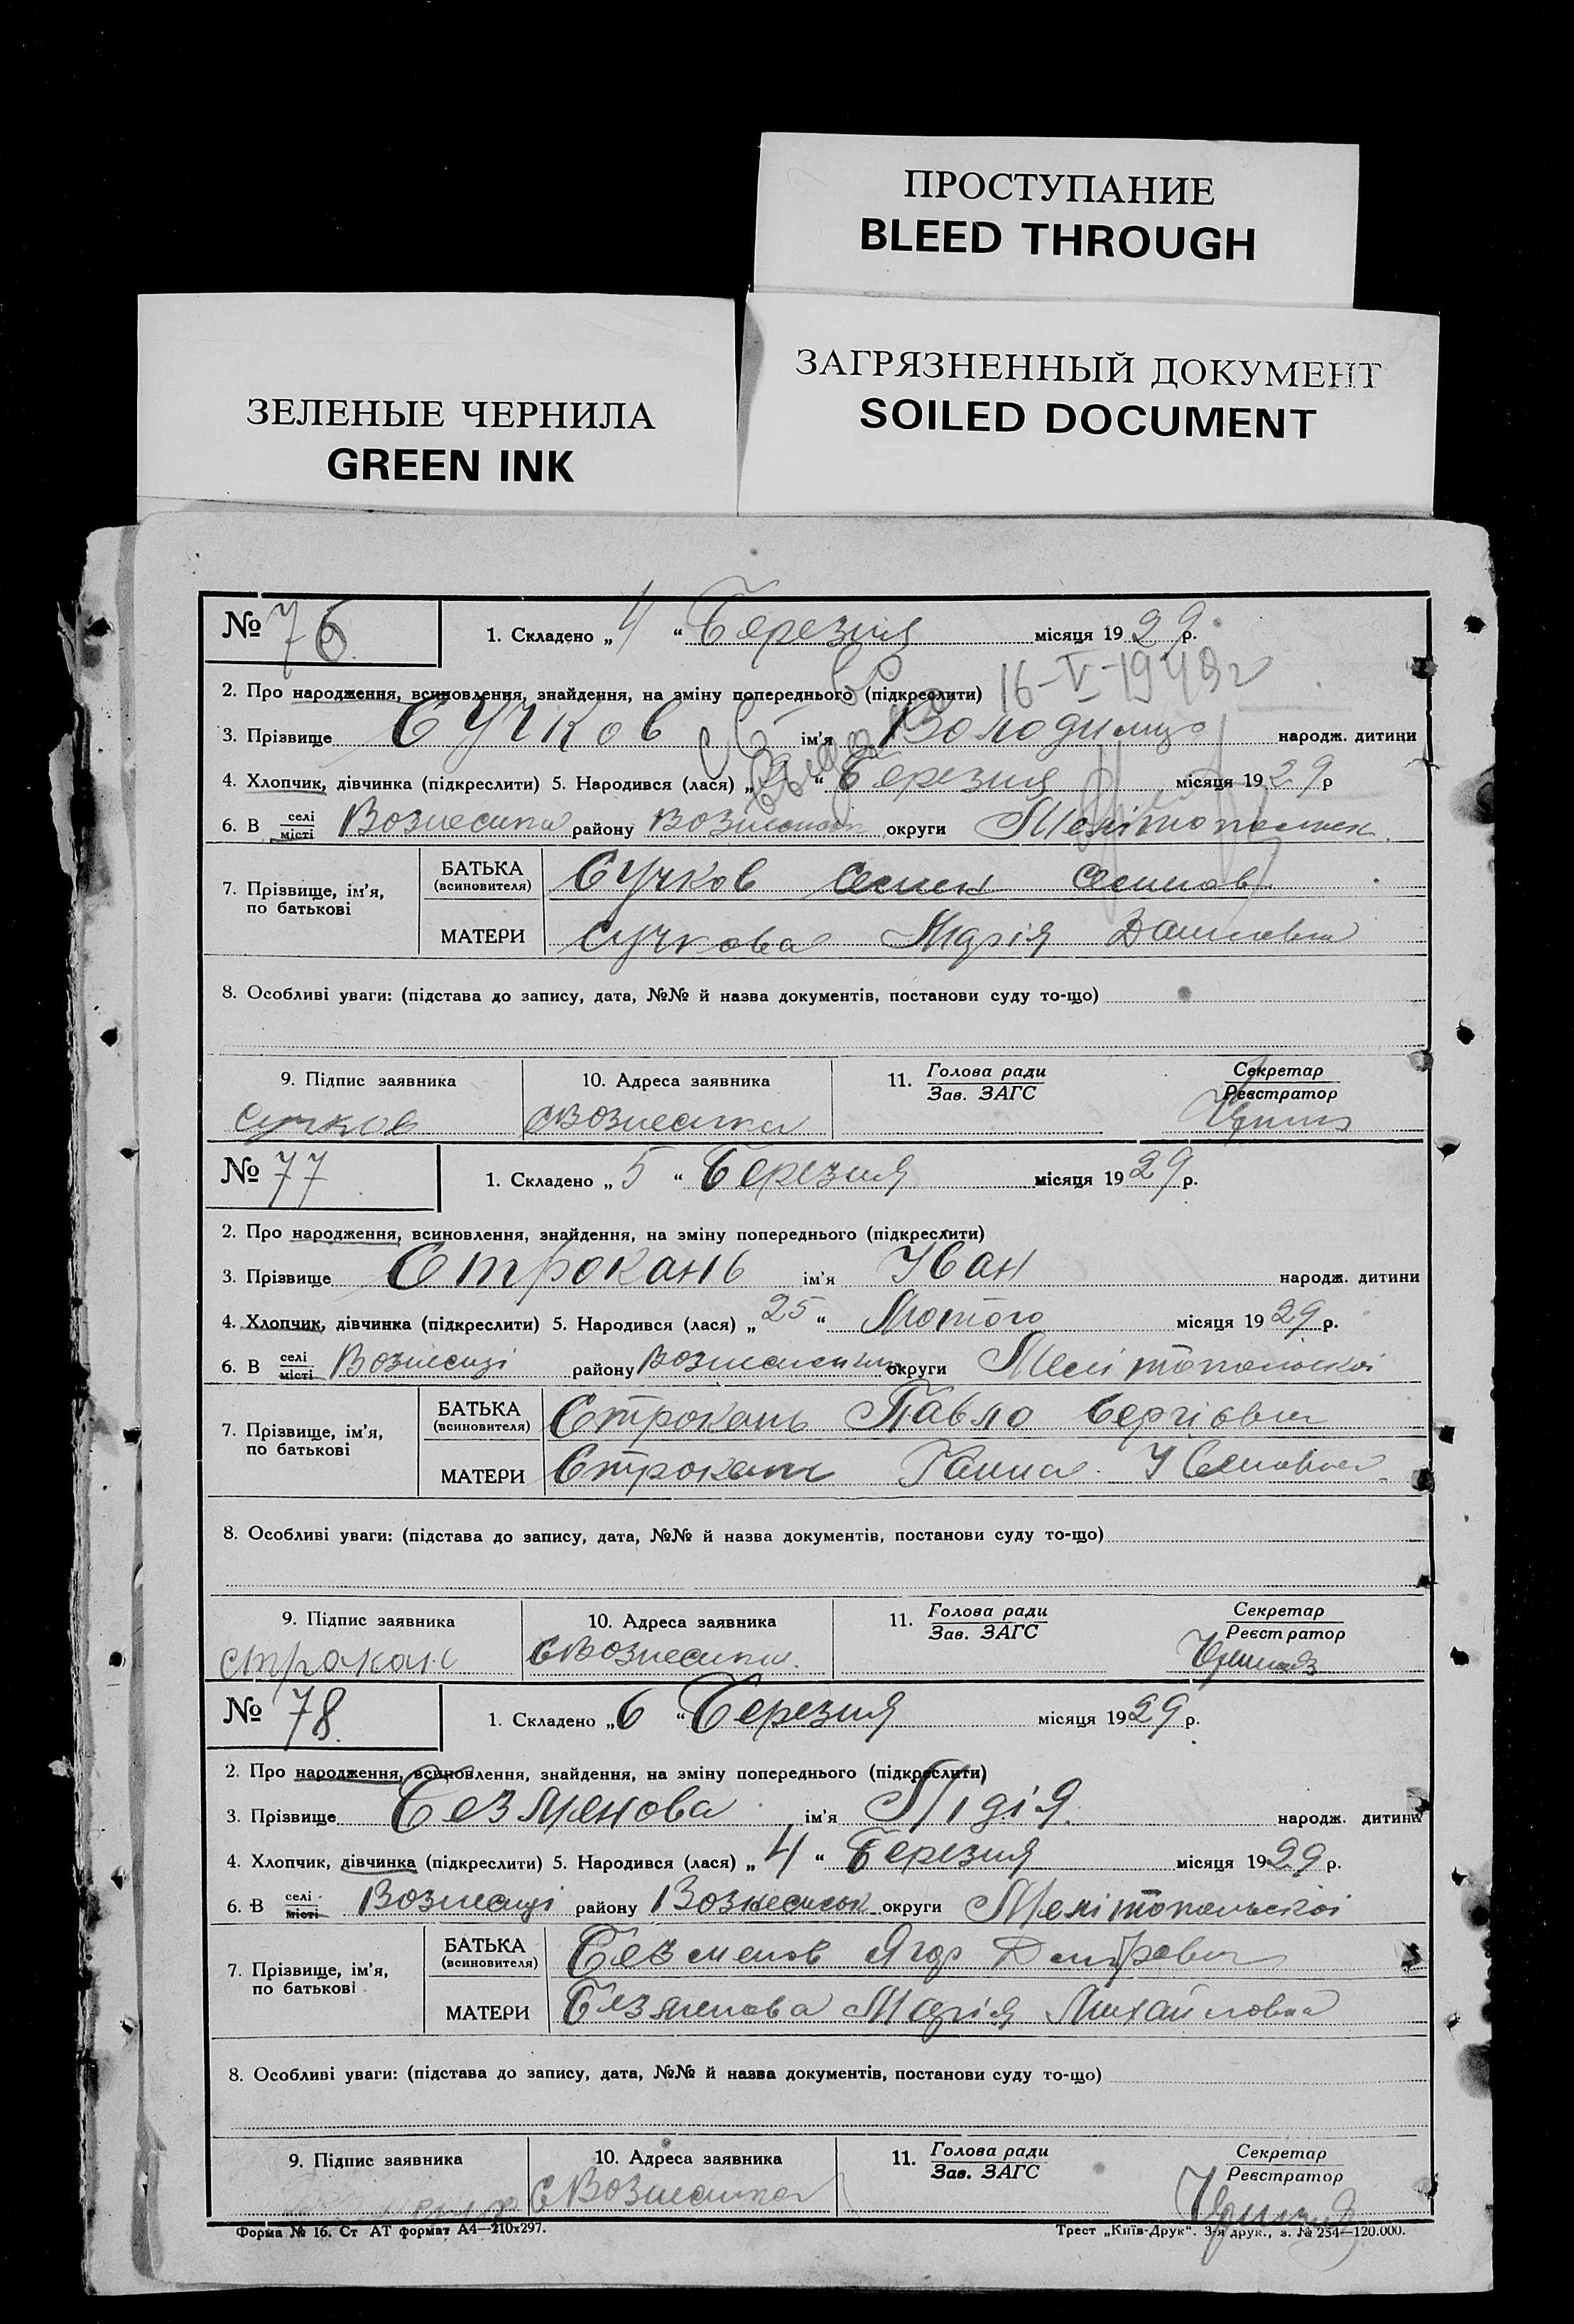 ПРОСТУПАНИЕ
BLEED THROUGH
ЗЕЛЕНЫЕ ЧЕРНИЛА
GREEN INK
ЗАГРЯЗНЕННЫЙ ДОКУМЕНТ
SOILED DOCUMENT
№ 76. 1. Складено „4“ Березня місяця 1929 р.
16-V-1949 г
2. Про народження, всиновлення, знайдення, на зміну попереднього (підкреслити)
3. Прізвище Сучков ім'я Володимир народж. дитини
4. Хлопчик, дівчинка (підкреслити) 5. Народився (лася) „ “ Березня місяця 1929 р
6. В селі/місті Вознесенка району округи Мелітопольск.
7. Прізвище, ім'я, по батькові
БАТЬКА (всиновителя) Сучков Семен Семенов
МАТЕРИ Сучкова Марія
8. Особливі уваги: (підстава до запису, дата, №№ й назва документів, постанови суду то-що)
9. Підпис заявника 10. Адреса заявника 11. Голова ради/Зав. ЗАГС Секретар/Реєстратор
Сучков с Вознесенка
№ 77 1. Складено „5“ Березня місяця 1929 р.
2. Про народження, всиновлення, знайдення, на зміну попереднього (підкреслити)
3. Прізвище Строкань ім'я Іван народж. дитини
4. Хлопчик, дівчинка (підкреслити) 5. Народився (лася) „25“ Лютого місяця 1929 р.
6. В селі/місті Вознесенці району округи Мелітопольскої
7. Прізвище, ім'я, по батькові
БАТЬКА (всиновителя) Строкань Павло Сергієвич
МАТЕРИ Строкань Ганна
8. Особливі уваги: (підстава до запису, дата, №№ й назва документів, постанови суду то-що)
9. Підпис заявника 10. Адреса заявника 11. Голова ради/Зав. ЗАГС Секретар/Реєстратор
с Вознесенка
№ 78. 1. Складено „6“ Березня місяця 1929 р.
2. Про народження, всиновлення, знайдення, на зміну попереднього (підкреслити)
3. Прізвище Безмянова ім'я Лідія. народж. дитини
4. Хлопчик, дівчинка (підкреслити) 5. Народився (лася) „4“ Березня місяця 1929 р.
6. В селі/місті Вознесенці району Вознесенськ округи Мелітопольскої
7. Прізвище, ім'я, по батькові
БАТЬКА (всиновителя) Безменов Ягор Дмітрович
МАТЕРИ Марія Михайловна
8. Особливі уваги: (підстава до запису, дата, №№ й назва документів, постанови суду то-що)
9. Підпис заявника 10. Адреса заявника 11. Голова ради/Зав. ЗАГС Секретар/Реєстратор
с Вознесенка
Форма № 16. Ст АТ формат А4—210х297. Трест „Київ-Друк“. 3-я друк., з. № 254—120.000.